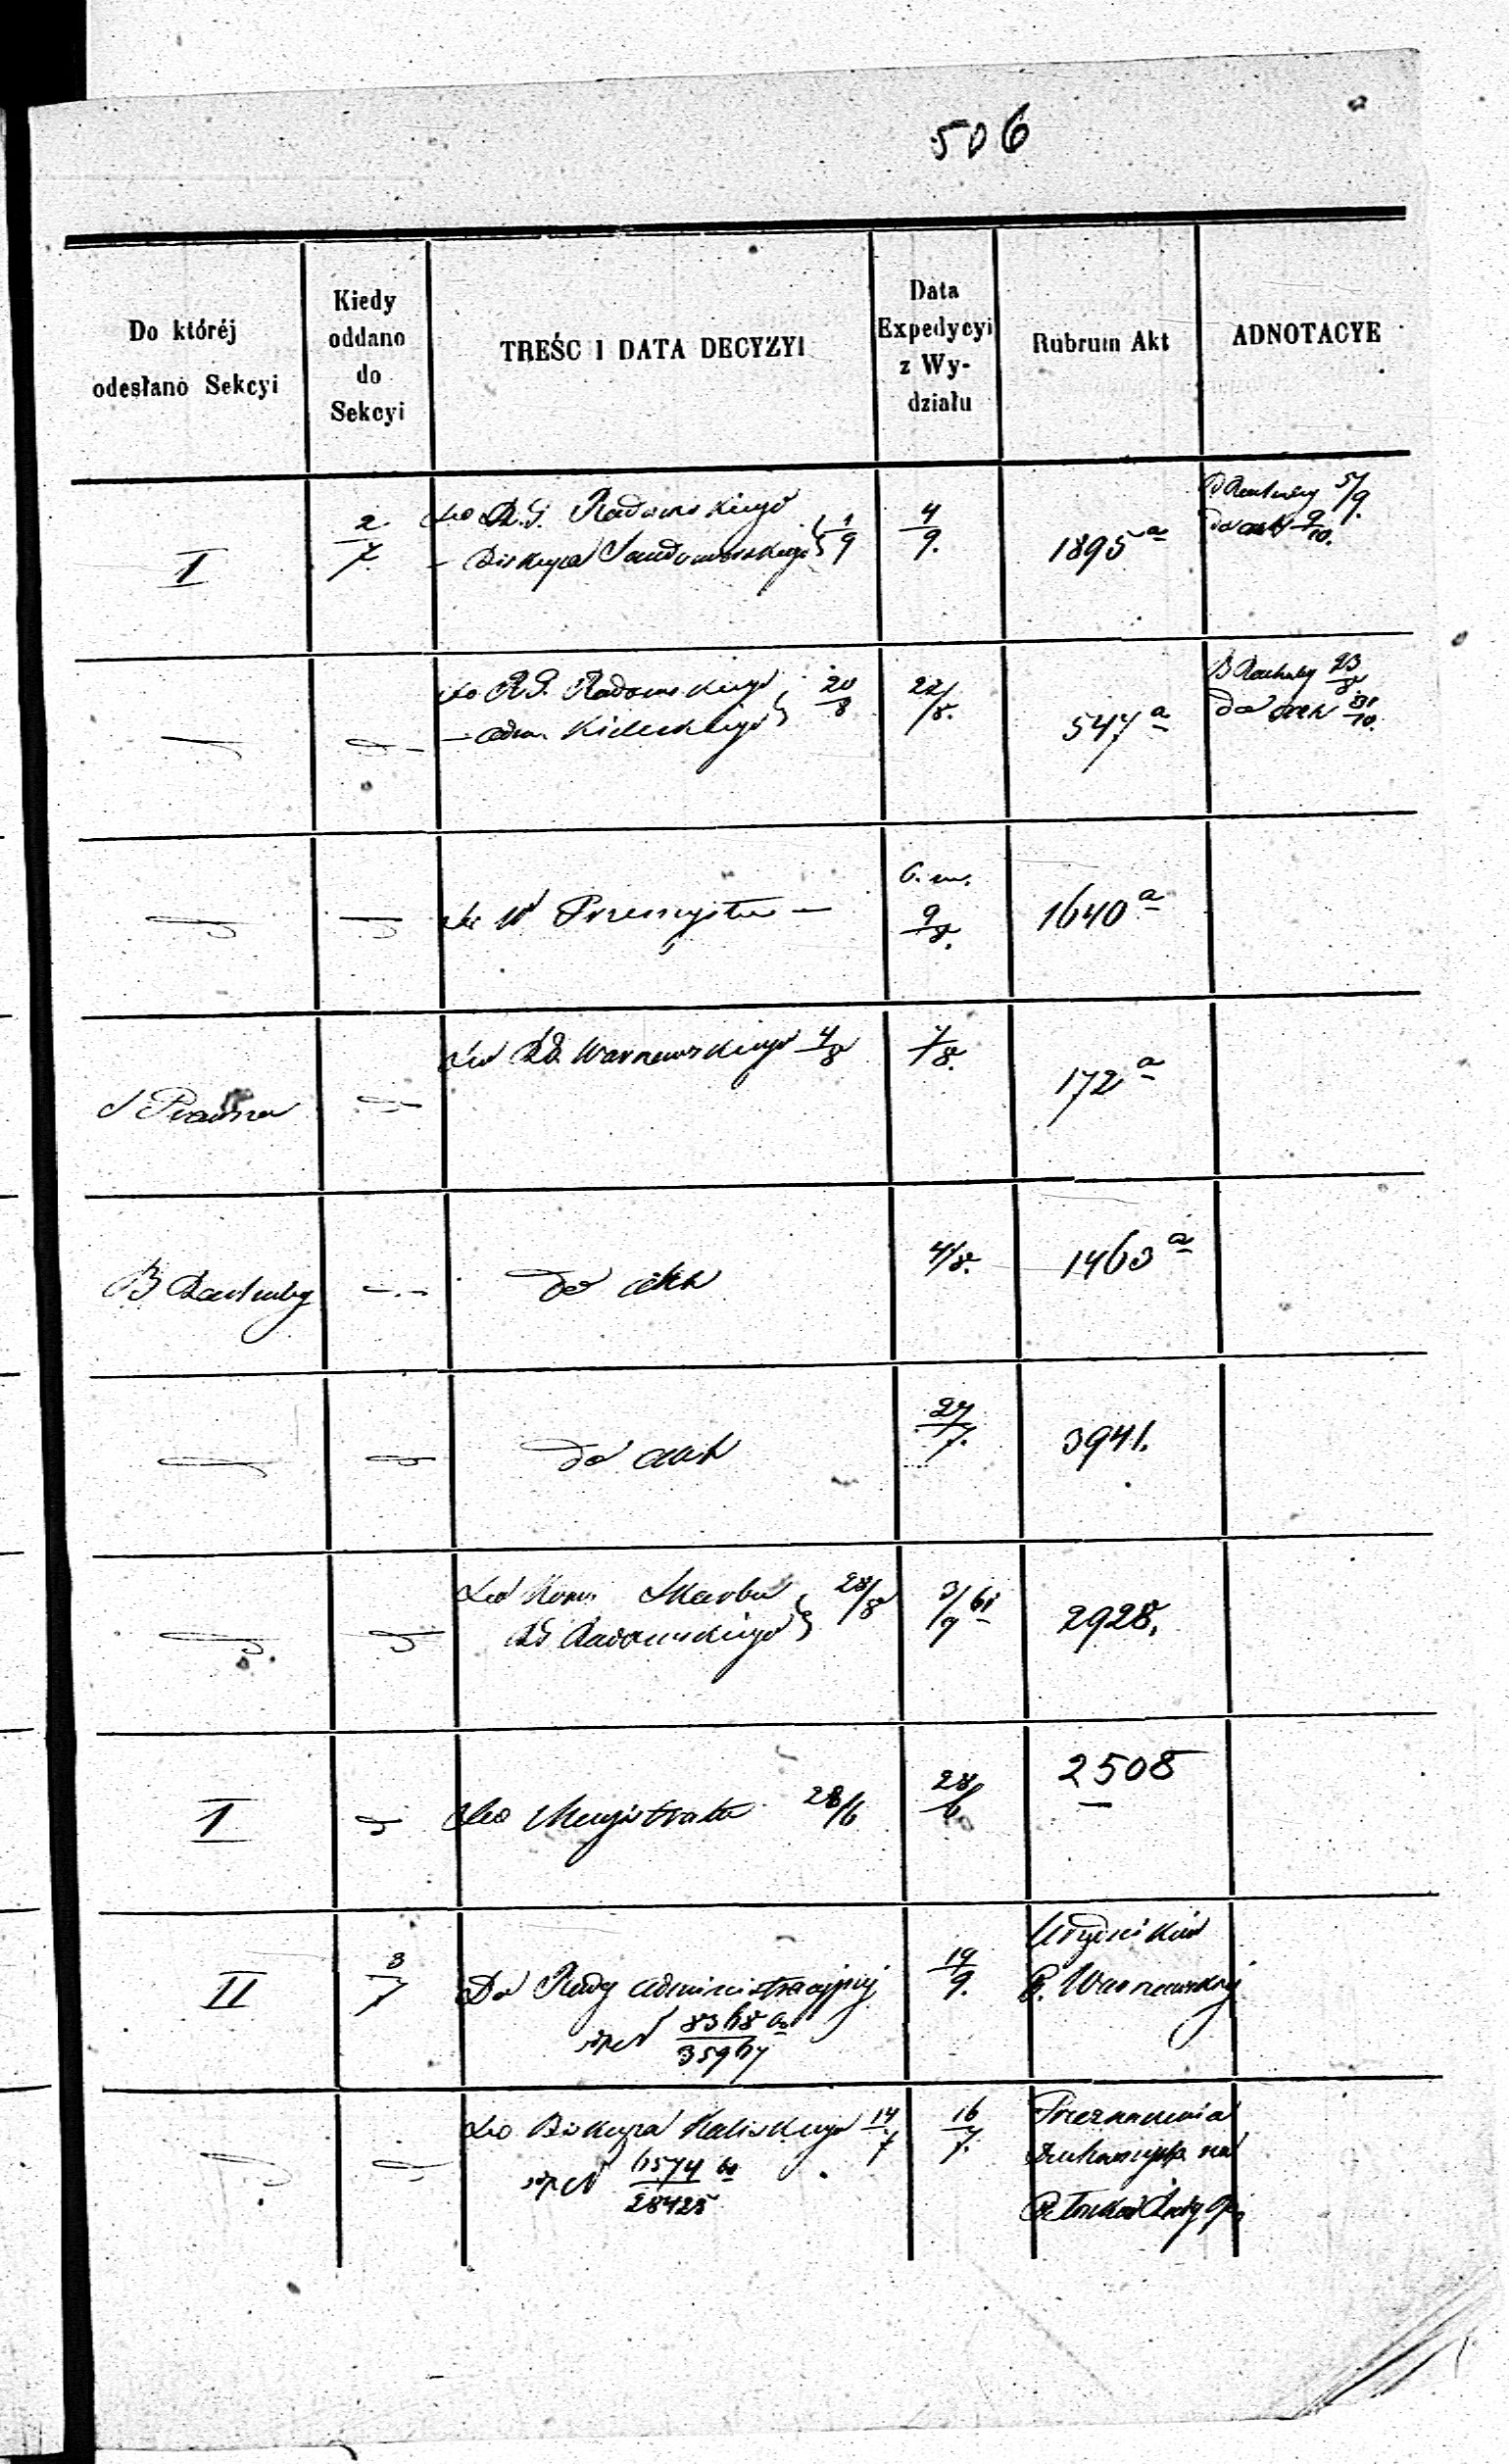 506
Do któréj
odesłano Sekcyi
Kiedy
oddano
do
Sekcyi
TREŚC I DATA DECYZYI
Data
Expedycyi
z Wy-
działu
Rubrum Akt
ADNOTACYE
I
2/7
Do R.G. Radomskiego
– Biskupa Sandomierskiego } 1/9
4/9.
1895 a
B Rachuby 5/9.
do akt 9/10.
Do R.G. Radomskiego
– Adm. Kieleckiego } 20/8
22/8.
547 a
B Rachuby 23/8
do akt 31/10.
Do W Przemysłu –
9/8.
1640 a
S Prawna
Do R.G. Warszawskiego 4/8
7/8.
172 a
B Rachuby
do akt
4/8.
1463 a
do akt
27/7.
3941.
Do Kom. Skarbu
RG Radomskiego } 28/8
3/9 61
2928.
I
Do Magistratu 28/6
28/6
2508
II
3/7
Do Rady Administracyjnej
19/9.
Urzędników
G. Warszawskiej
Do Biskupa Kaliskiego 14/7
28425
16/7.
Przeznaczenia